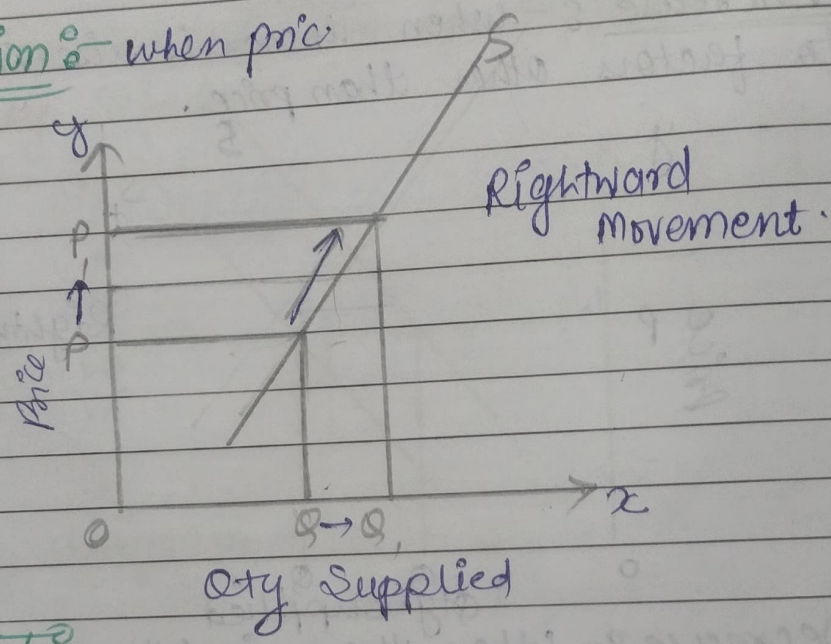 ion :- when pric
S
y
Rightward
Movement.
P₁
↑
P
Price
O
Q → Q₁
x
Qty Supplied